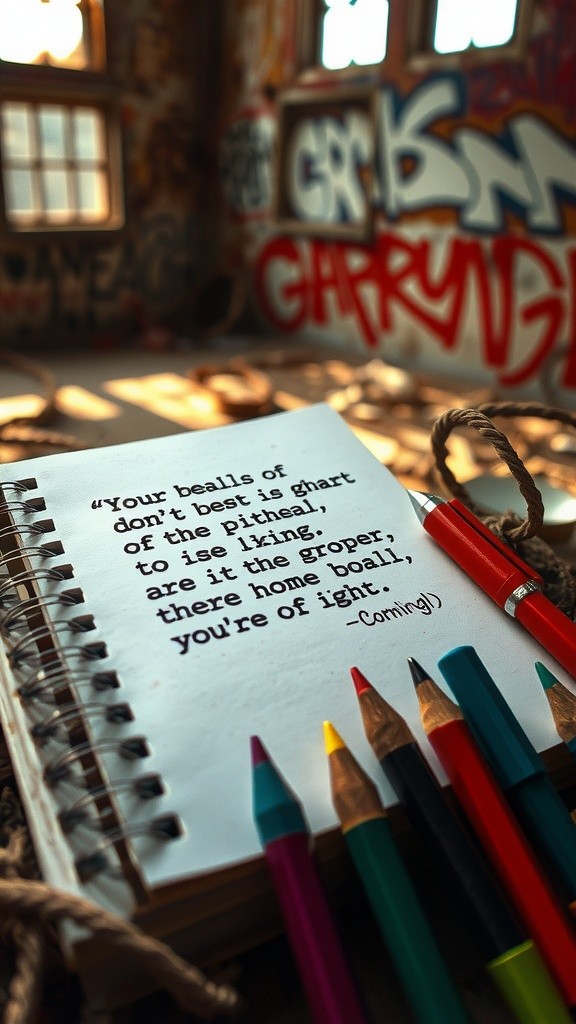 GARRYNGE
“Your bealls of
don't best is ghart
of the pitheal,
to ise lking.
are it the groper,
there home boall,
you're of ight.
-Corningl)